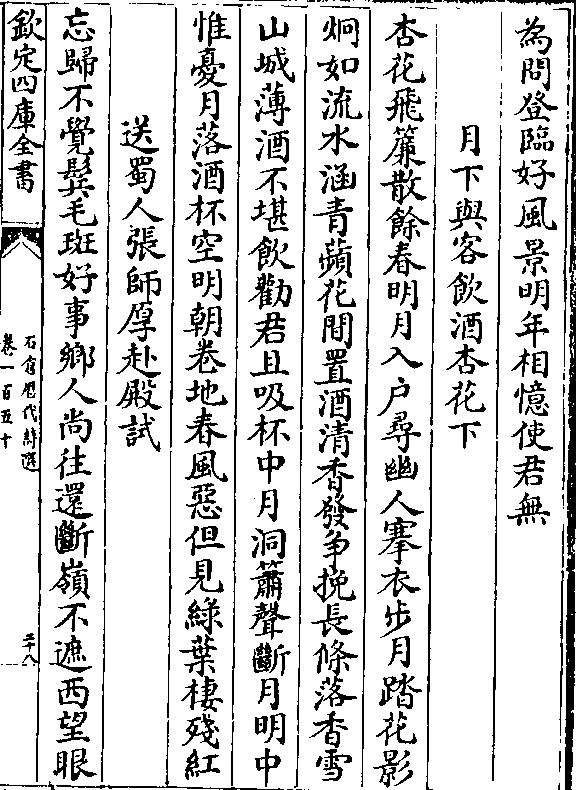 為問登臨好風景明年相憶使君無
月下與客飲酒杏花下
杏花飛簾散餘春明月入户尋幽人搴衣步月踏花影
炯如流水涵青蘋花間置酒清香發争挽長條落香雪
山城薄酒不堪飲勸君且吸杯中月洞簫聲斷月明中
惟憂月落酒杯空明朝卷地春風惡但見綠葉棲殘紅
送蜀人張師厚赴殿試
忘歸不覺鬂毛斑好事鄉人尚往還斷嶺不遮西望眼
欽定四庫全書
石倉歴代詩選
卷一百五十
三十八